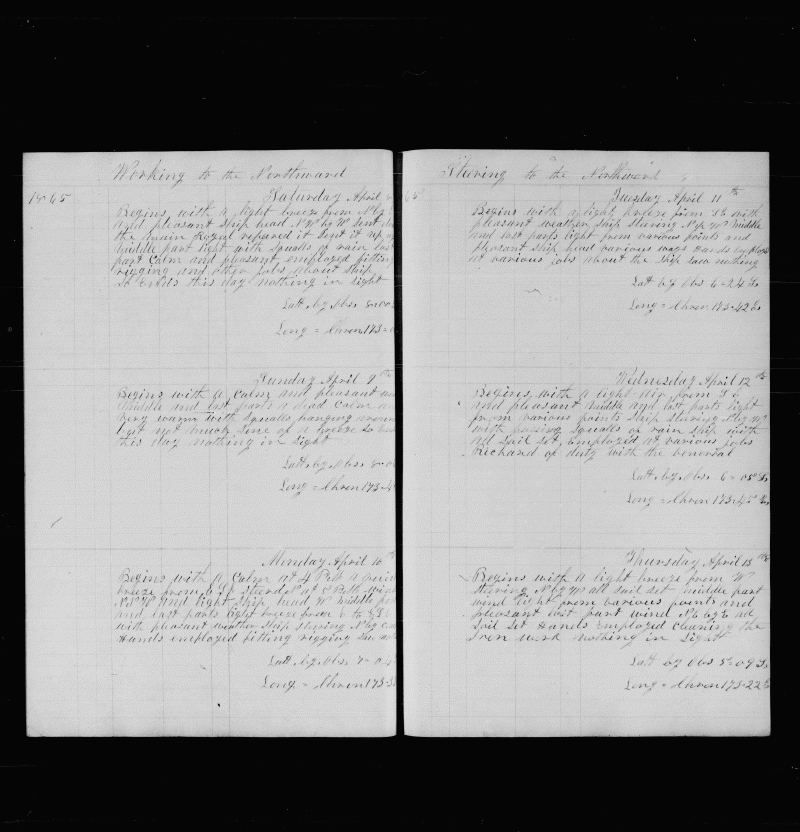 Working to the Northward
1865
Saturday April 8
Begins with a light breeze from N by
and pleasant Ship head N W by W Sent down
the main Royal repaired it Sent it up
middle part light with Squalls of rain last
part Calm and pleasant employed fitting
rigging and other jobs about Ship
So Ends this day nothing in Sight
Latt by Obs 8=00
Long = Chron 173=0
Sunday April 9th
Begins with a Calm and pleasant
middle and last parts a dead Calm
very warm with Squalls hanging
but not much Sine of a breeze So Ends
this day nothing in Sight
Latt by Obs 8=0
Long = Chron 173=4
Monday April 10th
Begins with a Calm at 4 P M a
breeze from Steerd N at 8 Both wind
N N W and light Ship head W middle
and last parts light breeze from E to S E
with pleasant weather Ship Steering N by
Hands employed fitting rigging Saw
Latt by Obs 7=04
Long = Chron 173=3
Steering to the Northward
65
Tuesday April 11th
Begins with a light breeze from S E with
pleasant weather Ship Steering N by W middle
and last parts light from various points and
pleasant Ship head various ways Hands employed
at various jobs about the Ship Saw nothing
Latt by Obs 6=24 S
Long = Chron 173=42 E
Wednesday April 12th
Begins with a light air from S E
and pleasant middle and last parts light
from various points Ship Steering N by W
with passing Squalls of rain Ship with
all Sail Set Employed at various jobs
Richard of duty with the veneral
Latt by Obs 6=05 S
Long = Chron 173=45 E
Thursday April 13th
Begins with a light breeze from W
Steering N by W all Sail Set middle part
wind light from various points and
pleasant last part wind N E by E all
Sail Set Hands Employed cleaning the
Iron work nothing in Sight
Latt by Obs 5=09 S
Long = Chron 173=22 E